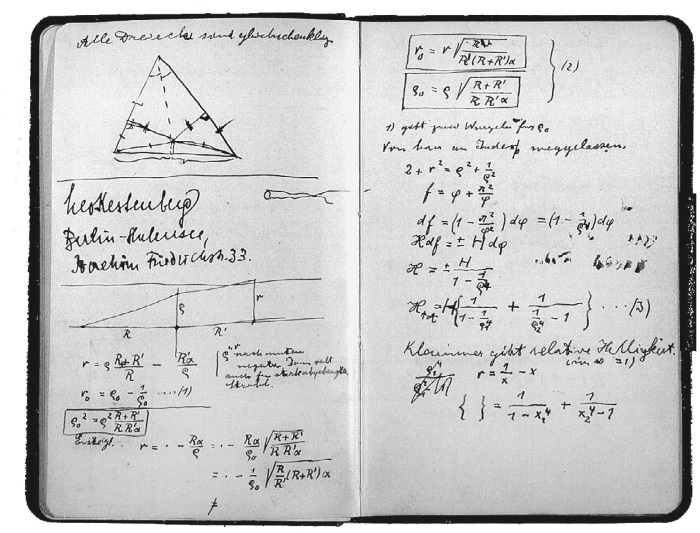 Alle Dreiecke sind gleichschenklig.
Leo Kestenberg
Berlin-Halensee,
Joachim Friedrichstr. 33.
ρ r
R R'
r = ρ (R+R')/R − R'α/ρ
ρ, r nach unten
negativ. Dann gilt
auch für stark abgebeugten
Strahl.
r₀ = ρ₀ − 1/ρ₀ .... (1)
ρ₀² = ρ² (R+R')/(R R'α)
r = · − Rα/ρ = · − Rα/ρ₀ √((R+R')/(R R'α))
= · − 1/ρ₀ √(R/R' (R+R')α)
r₀ = r √(R/(R'(R+R')α))
ρ₀ = ρ √((R+R')/(R R'α)) } (2)
1) gibt zwei Wurzeln für ρ₀
Von hier an Indices weggelassen.
2 + r² = ρ² + 1/ρ²
f = φ + π²/φ
df = (1 − π²/φ²) dφ = (1 − 1/ρ⁴) dφ
H df = ± H dφ
H = ± H/(1 − 1/ρ⁴)
H tot = H { 1/(1 − 1/ρ₁⁴) + 1/(1/ρ₂⁴ − 1) } .... (3)
Klammer gibt relative Helligkeit.
(in ∞ = 1)
r = 1/x − x
{ } = 1/(1 − x₁⁴) + 1/(x₂⁴ − 1)